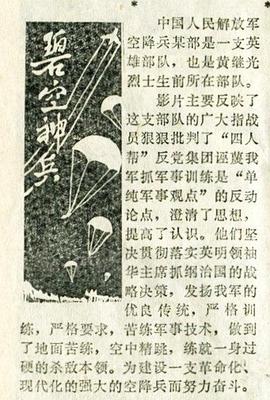 碧空神兵
中国人民解放军
空降兵某部是一支英
雄部队，也是黄继光
烈士生前所在部队。
影片主要反映了
这支部队的广大指战
员狠狠批判了“四人
帮”反党集团诬蔑我
军抓军事训练是“单
纯军事观点”的反动
论点，澄清了思想，
提高了认识。他们坚
决贯彻落实英明领袖
华主席抓纲治国的战
略决策，发扬我军的
优良传统，严格训
练，严格要求，苦练军事技术，做到
了地面苦练，空中精跳，练就一身过
硬的杀敌本领。为建设一支革命化、
现代化的强大的空降兵而努力奋斗。